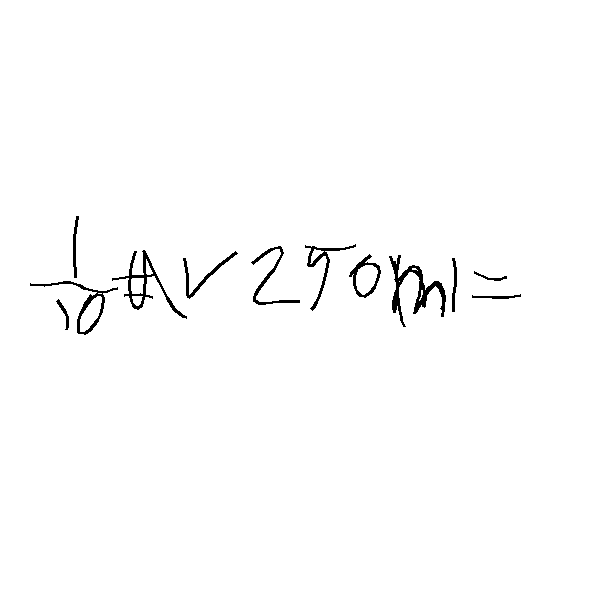 1/10 av 250ml=